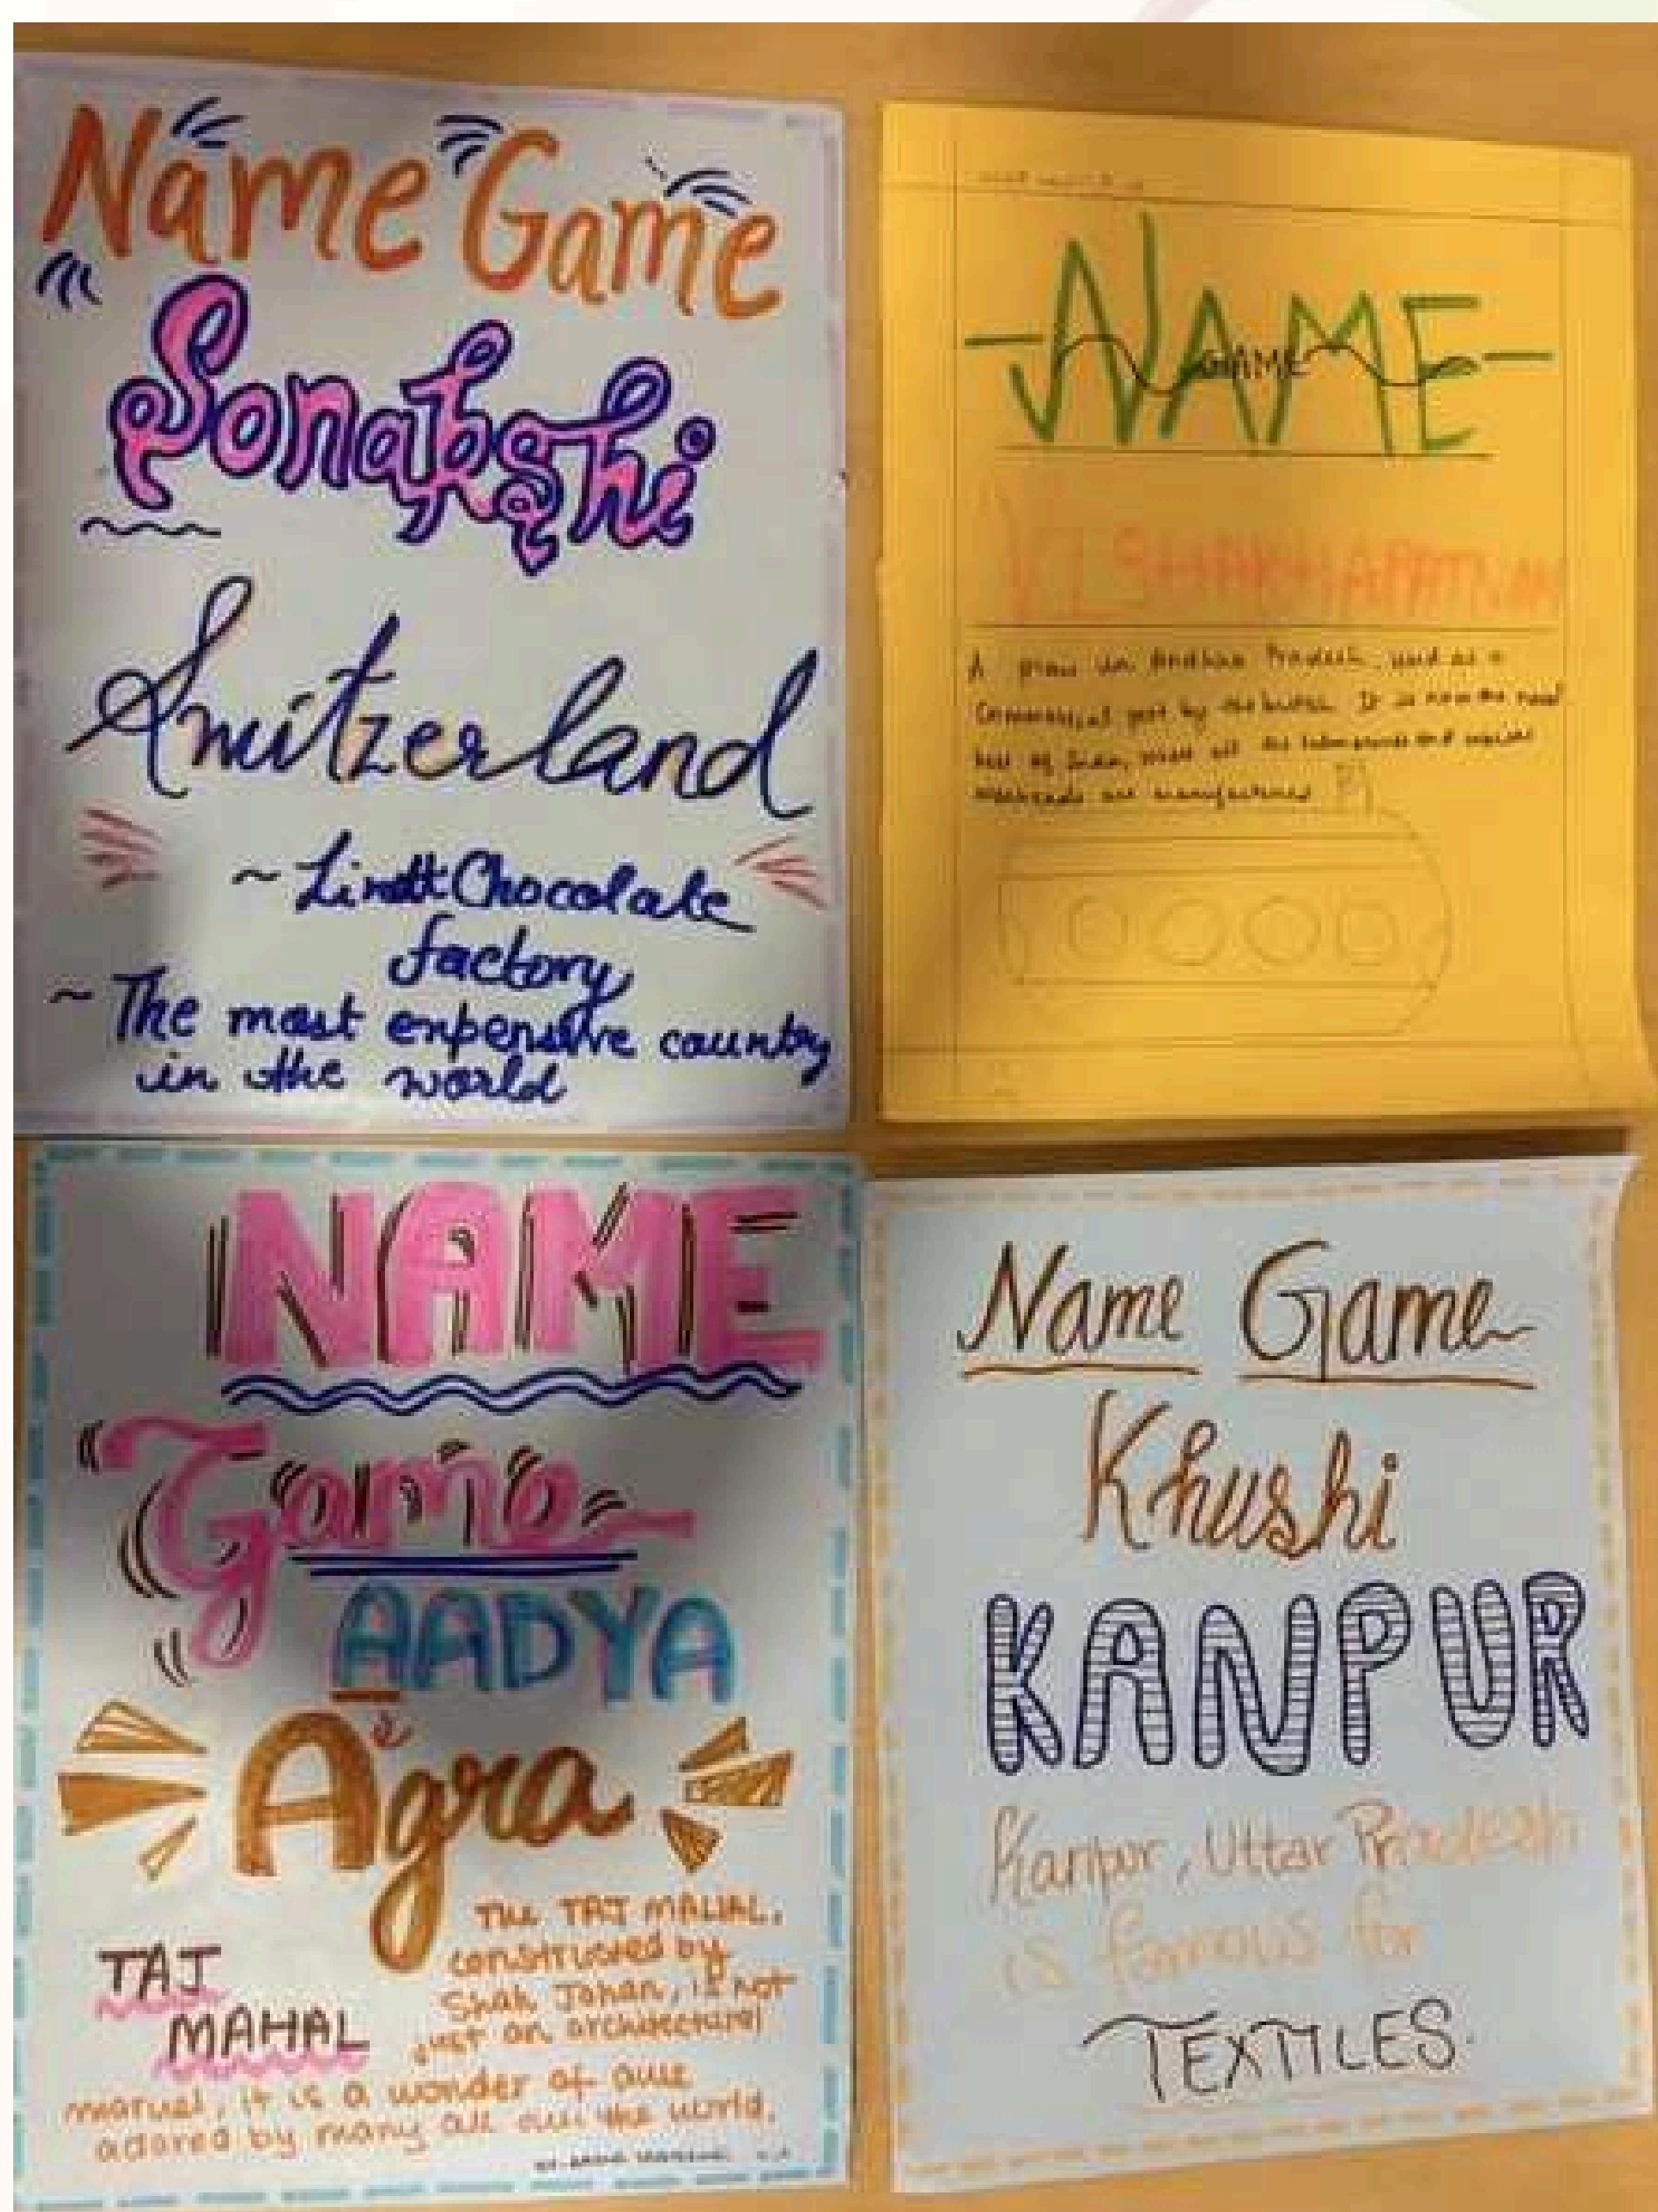 Name Game
Sonakshi
Switzerland
~ Lindt Chocolate
factory
~ The most expensive country
in the world
NAME
GAME
VISHAKHAPATNAM
A place in Andhra Pradesh, used as a
Commercial port by the british. It is now the naval
base of India, where all the submarines and
are manufactured
NAME
Game
AADYA
Agra
TAJ
MAHAL
THE TAJ MAHAL,
constructed by
Shah Jahan, is not
just an architectural
marvel, it is a wonder of awe
adored by many all over the world.
Name Game
Khushi
KANPUR
Kanpur, Uttar Pradesh
is famous for
TEXTILES.